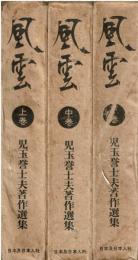 風雲
上巻
児玉誉士夫著作選集
日本及日本人社
風雲
中巻
児玉誉士夫著作選集
日本及日本人社
風雲
巻
児玉誉士夫著作選集
日本及日本人社